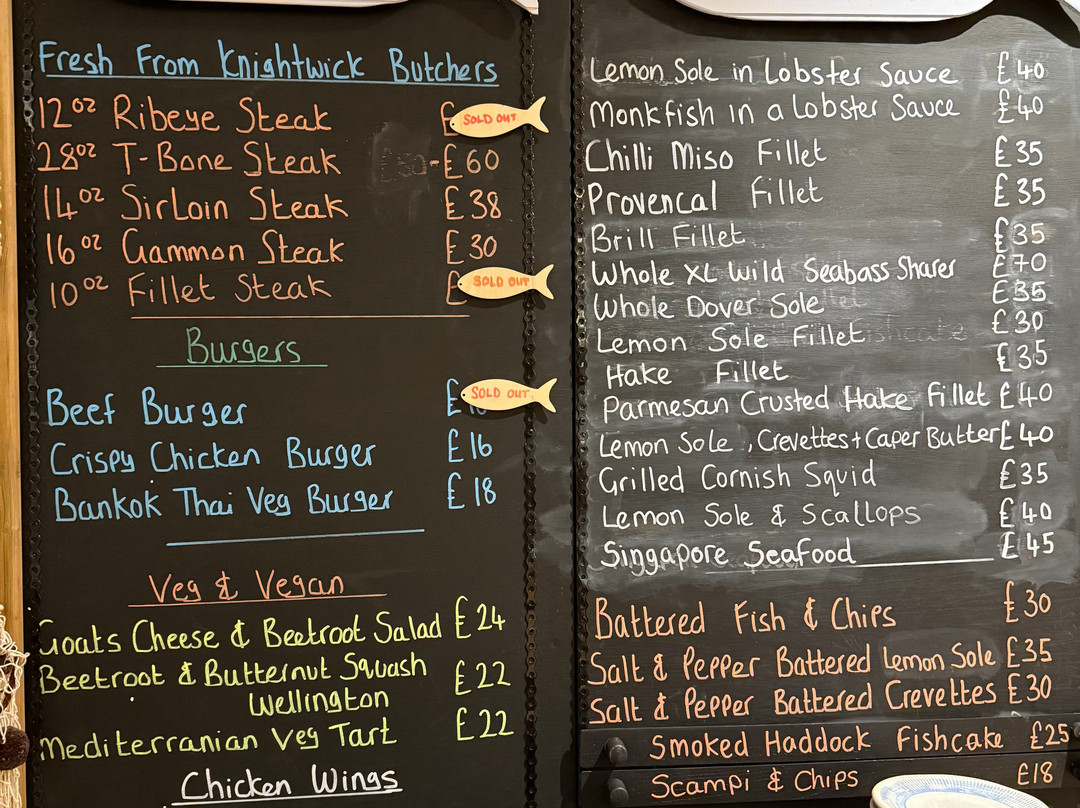 Fresh From Knightwick Butchers
12oz Ribeye Steak £ SOLD OUT
28oz T-Bone Steak £60
14oz Sirloin Steak £38
16oz Gammon Steak £30
10oz Fillet Steak £ SOLD OUT
Burgers
Beef Burger £ SOLD OUT
Crispy Chicken Burger £16
Bankok Thai Veg Burger £18
Veg & Vegan
Goats Cheese & Beetroot Salad £24
Beetroot & Butternut Squash £22
Wellington
Mediterranian Veg Tart £22
Chicken Wings
Lemon Sole in Lobster Sauce £40
Monkfish in a Lobster Sauce £40
Chilli Miso Fillet £35
Provencal Fillet £35
Brill Fillet £35
Whole XL Wild Seabass Sharer £70
Whole Dover Sole £35
Lemon Sole Fillet £30
Hake Fillet £35
Parmesan Crusted Hake Fillet £40
Lemon Sole, Crevettes + Caper Butter £40
Grilled Cornish Squid £35
Lemon Sole & Scallops £40
Singapore Seafood £45
Battered Fish & Chips £30
Salt & Pepper Battered Lemon Sole £35
Salt & Pepper Battered Crevettes £30
Smoked Haddock Fishcake £25
Scampi & Chips £18